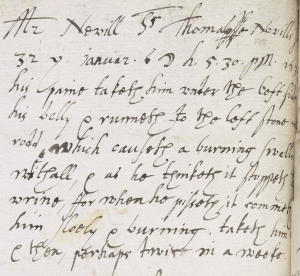 Mr Nevill 55 Thomas Nevill
32 y. Januar. 6 ☽ h. 5. 30. pm. 15
his paine taketh him under the left sid
his belly & runneth to the left stone
rodd which causeth a burning
withall, & as he thinketh it stoppeth
urine for when he pisseth it commeth
him slowly & burning. taketh him
& then perhaps twise in a weeke